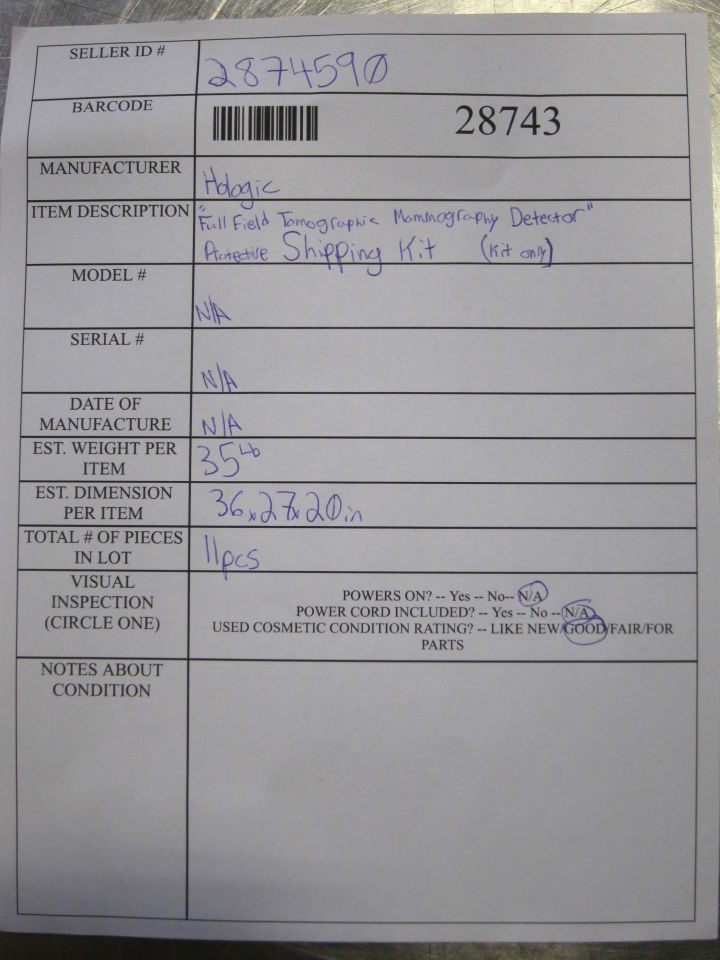 SELLER ID # 2874590
BARCODE 28743
MANUFACTURER Hologic
ITEM DESCRIPTION "Full Field Tomographic Mammography Detector"
Protective Shipping Kit (Kit only)
MODEL #
N/A
SERIAL #
N/A
DATE OF
MANUFACTURE N/A
EST. WEIGHT PER
ITEM 35 lb
EST. DIMENSION
PER ITEM 36x27x20in
TOTAL # OF PIECES
IN LOT 11pcs
VISUAL
INSPECTION
(CIRCLE ONE)
POWERS ON? -- Yes -- No-- N/A
POWER CORD INCLUDED? -- Yes -- No -- N/A
USED COSMETIC CONDITION RATING? -- LIKE NEW/GOOD/FAIR/FOR
PARTS
NOTES ABOUT
CONDITION